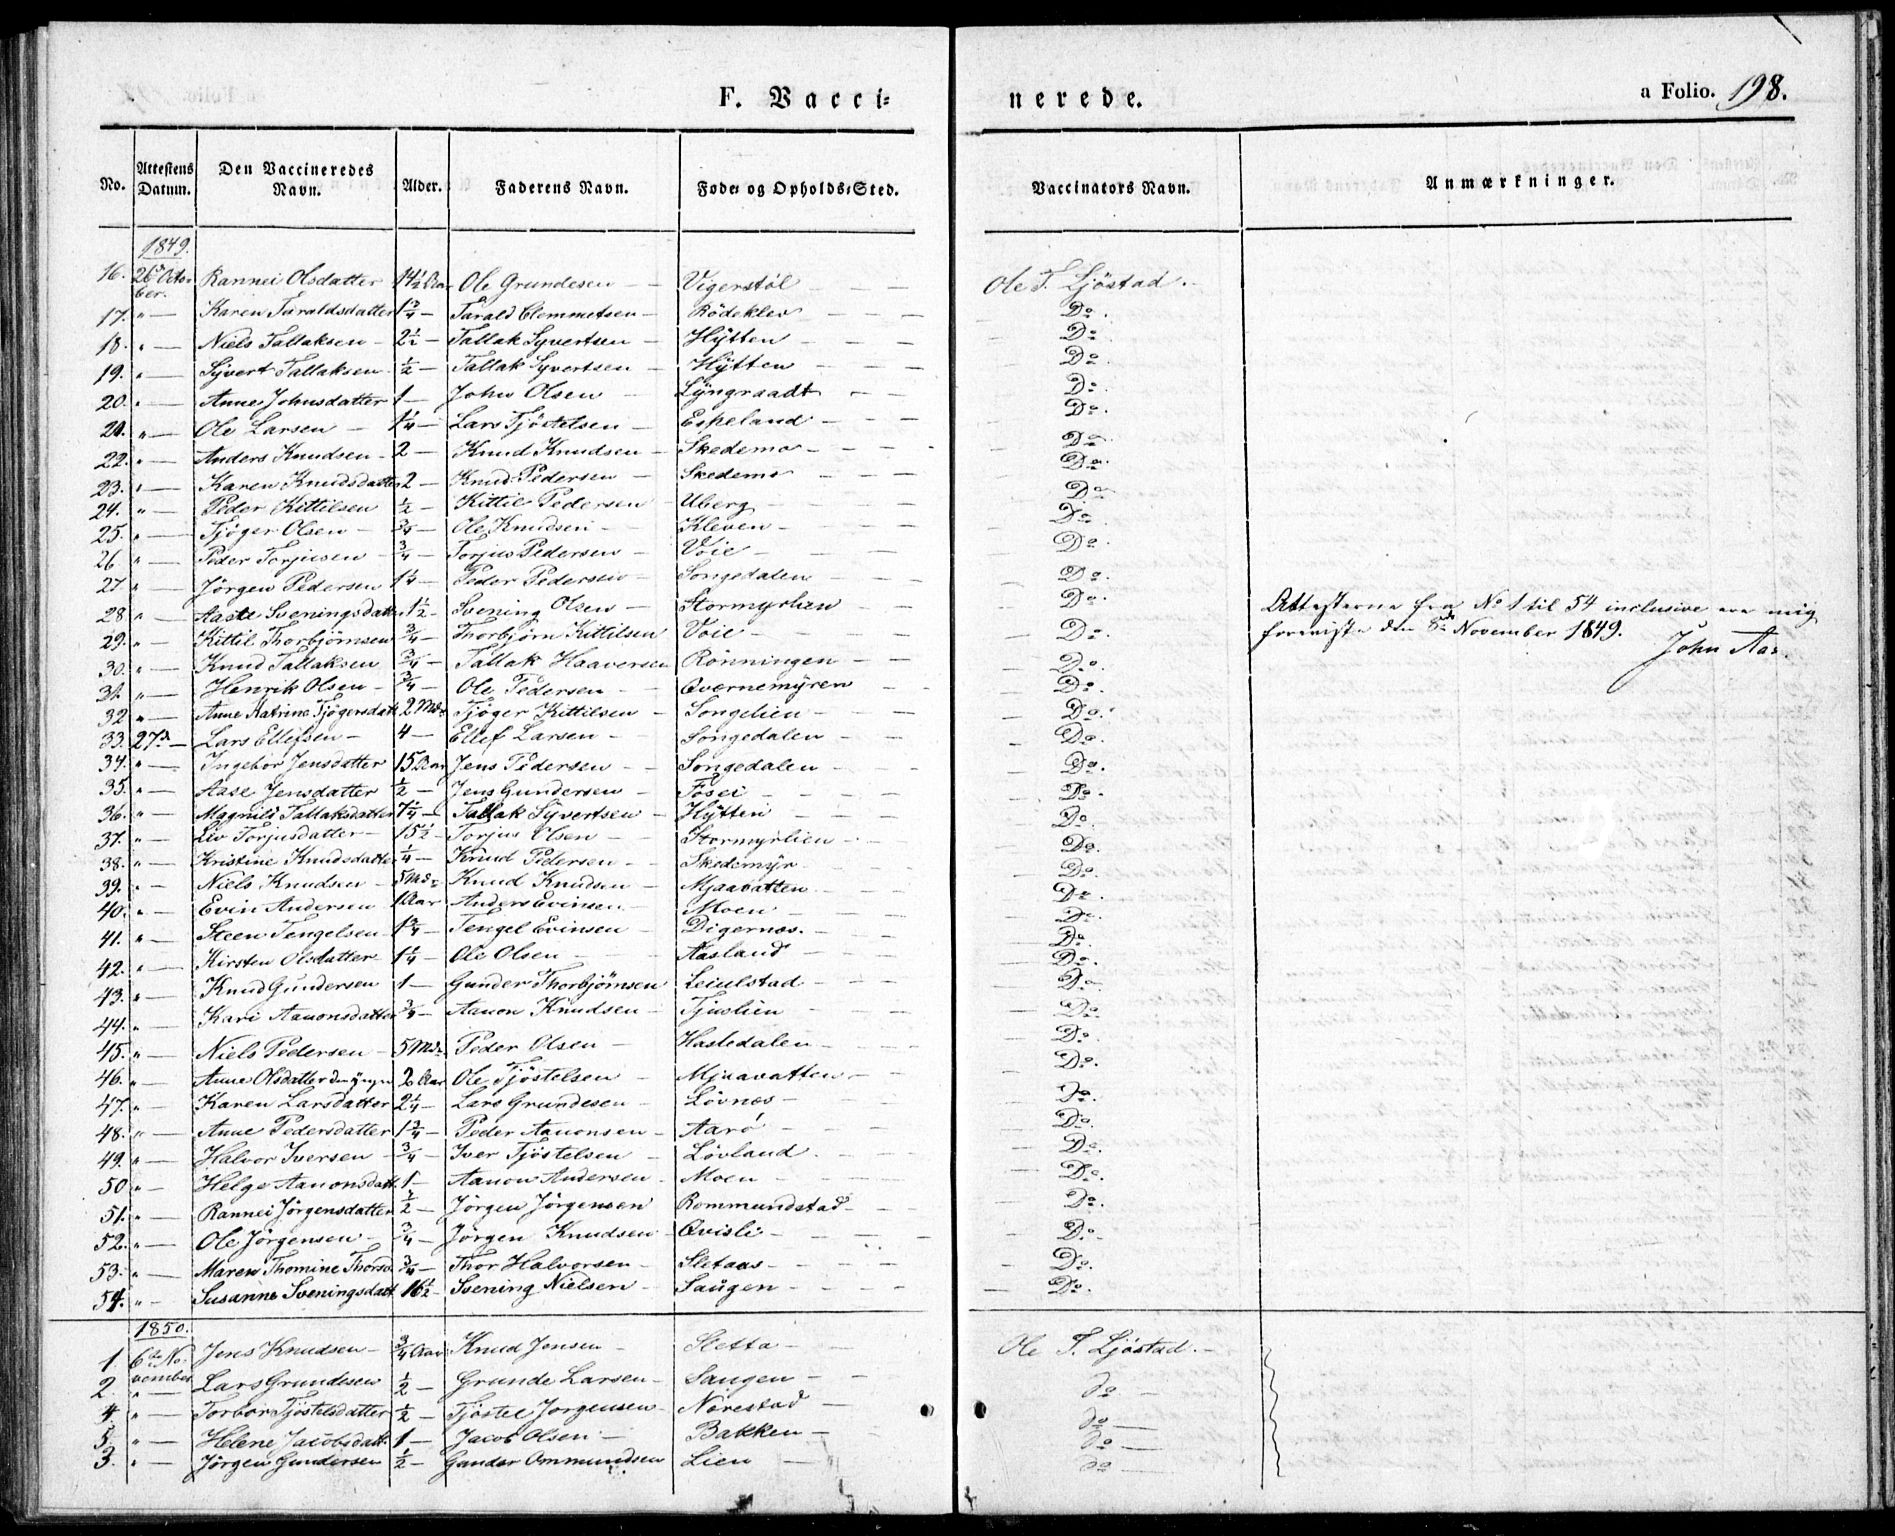 F. Vacci=
nerede.
a Folio. 198.
No. | Attestens Datum. | Den Vaccineredes Navn. | Alder. | Faderens Navn. | Føde= og Opholds=Sted. | Vaccinators Navn. | Anmærkninger.
1849.
16. | 26de October. | Rannei Olsdatter | 14½ Aar | Ole Grundesen — | Vigerstöl — | Ole T. Ljöstad.
17. | " — | Karen Taraldsdatter | 1¾ — | Tarald Clemmetsen — | Rödeklev — | Do.
18. | " — | Niels Tallaksen — | 2½ — | Tallak Syvertsen — | Hÿtten — | Do.
19. | " — | Syvert Tallaksen | ½ — | Tallak Syvertsen — | Hÿtten — | Do.
20. | " — | Anne Johnsdatter | 1 — | John Olsen — | Lÿngraadt — | Do.
21. | " — | Ole Larsen — | 1¼ — | Lars Tjöstelsen — | Espeland — | Do.
22. | " — | Anders Knudsen — | 2 — | Knud Knudsen — | Skedemo — | Do.
23. | " — | Karen Knudsdatter | 2 — | Knud Pedersen — | Skedemo — | Do.
24. | " — | Peder Kittilsen | ½ — | Kittil Pedersen | Uberg — | Do.
25. | " — | Tjöger Olsen — | ¾ — | Ole Knudsen — | Kleven — | Do.
26 | " — | Peder Torjusen — | ¾ — | Torjus Pedersen — | Voie — | Do.
27 | " — | Jörgen Pedersen | 1¼ — | Peder Pedersen — | Songedalen — | Do.
28 | " — | Aaste Sveningsdatt. | 1½ — | Svening Olsen — | Stormyrlien — | Do.
29. | " — | Kittil Thorbjörnsen | ¾ — | Thorbjörn Kittilsen | Voie — | Do.
30. | " — | Knud Tallaksen | ¾ — | Tallak Haaversen | Rönningen — | Do.
31. | " — | Henrik Olsen — | ¾ — | Ole Pedersen — | Qvernemÿren — | Do.
32 | " — | Anne Katrine Tjögersdatt | 2 Md. | Tjöger Kittilsen — | Songelien — | Do.
33. | 27de — | Lars Ellefsen — | 4 — | Ellef Larsen — | Songedalen — | Do.
34. | " — | Ingebor Jensdatter | 15 Aar | Jens Pedersen — | Songedalen — | Do.
35. | " — | Aase Jensdatter | ½ — | Jens Gundersen — | Fosei — | Do.
36. | " — | Magnild Tallaksdatter | 7¼ — | Tallak Syvertsen — | Hÿtten — | Do.
37. | " — | Liv Torjusdatter — | 15½ — | Torjus Olsen — | Stormyrlien — | Do.
38. | " — | Kristine Knudsdatter | ¼ — | Knud Pedersen — | Skedemÿr — | Do.
39. | " — | Niels Knudsen — | 5 Md. | Knud Knudsen — | Mjaavatten — | Do.
40. | " — | Evin Andersen | 1 Aar | Anders Evinsen — | Moen — | Do.
41. | " — | Steen Tengelsen | 1¾ — | Tengel Evinsen — | Digernæs. — | Do.
42. | " — | Kirsten Olsdatter | 1¼ — | Ole Olsen — | Aasland — | Do.
43. | " — | Knud Gundersen | 1 — | Gunder Thorbjörnsen | Leiulstad — | Do.
44. | " — | Kari Aanonsdatter | ¾ — | Aanon Knudsen — | Tjuslien — | Do.
45. | " — | Niels Pedersen — | 5 Md. | Peder Olsen — | Hastedalen — | Do.
46. | " — | Anne Olsdatter den yngre | 2 Aar | Ole Tjöstelsen — | Mjaavatten — | Do.
47. | " — | Karen Larsdatter | 2¼ — | Lars Grundesen — | Lövnæs — | Do.
48. | " — | Anne Pedersdatter | 1¾ — | Peder Aanonsen — | Aarö — | Do.
49. | " — | Halvor Iversen — | ¾ — | Iver Tjöstelsen — | Lövland — | Do.
50 | " — | Helge Aanonsdatt. | 1 — | Aanon Andersen — | Moen — | Do.
51. | " — | Rannei Jörgensdatter | ½ — | Jörgen Jörgensen | Rommundstad — | Do.
52. | " — | Ole Jörgensen — | ¾ — | Jörgen Knudsen — | Qvisli — | Do.
53. | " — | Maren Thomine Thorsd. | ¾ — | Thor Halvorsen — | Sletaas — | Do.
54. | " — | Susanne Sveningsdatt | 16½ — | Svening Nielsen — | Saugen — | Do.
Attesterne fra No 1 til 54 inclusive ere mig
foreviste den 8de November 1849.
John Aas.
1850.
1. | 6te November | Jens Knudsen — | ¾ Aar | Knud Jensen — | Sletta — | Ole T. Ljöstad. —
2. | " — | Lars Grundesen | ½ — | Grunde Larsen — | Saugen — | do —
4. | " — | Torbor Tjöstelsdatter | ½ — | Tjöstel Jorgensen — | Norestad — | do —
5. | " — | Helene Jacobsdatt. | 1 — | Jacob Olsen — | Bakken — | do —
3. | " — | Jörgen Gundersen | ½ — | Gunder Ommundsen | Lien — | do —